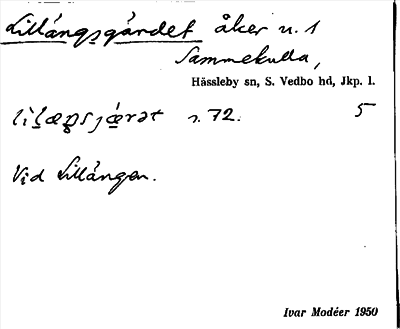 Lillängsgärdet åker n. 1
Sammekulla,
Hässleby sn, S. Vedbo hd, Jkp. l.
s. 72. 5
Vid Lillängen.
Ivar Modéer 1950